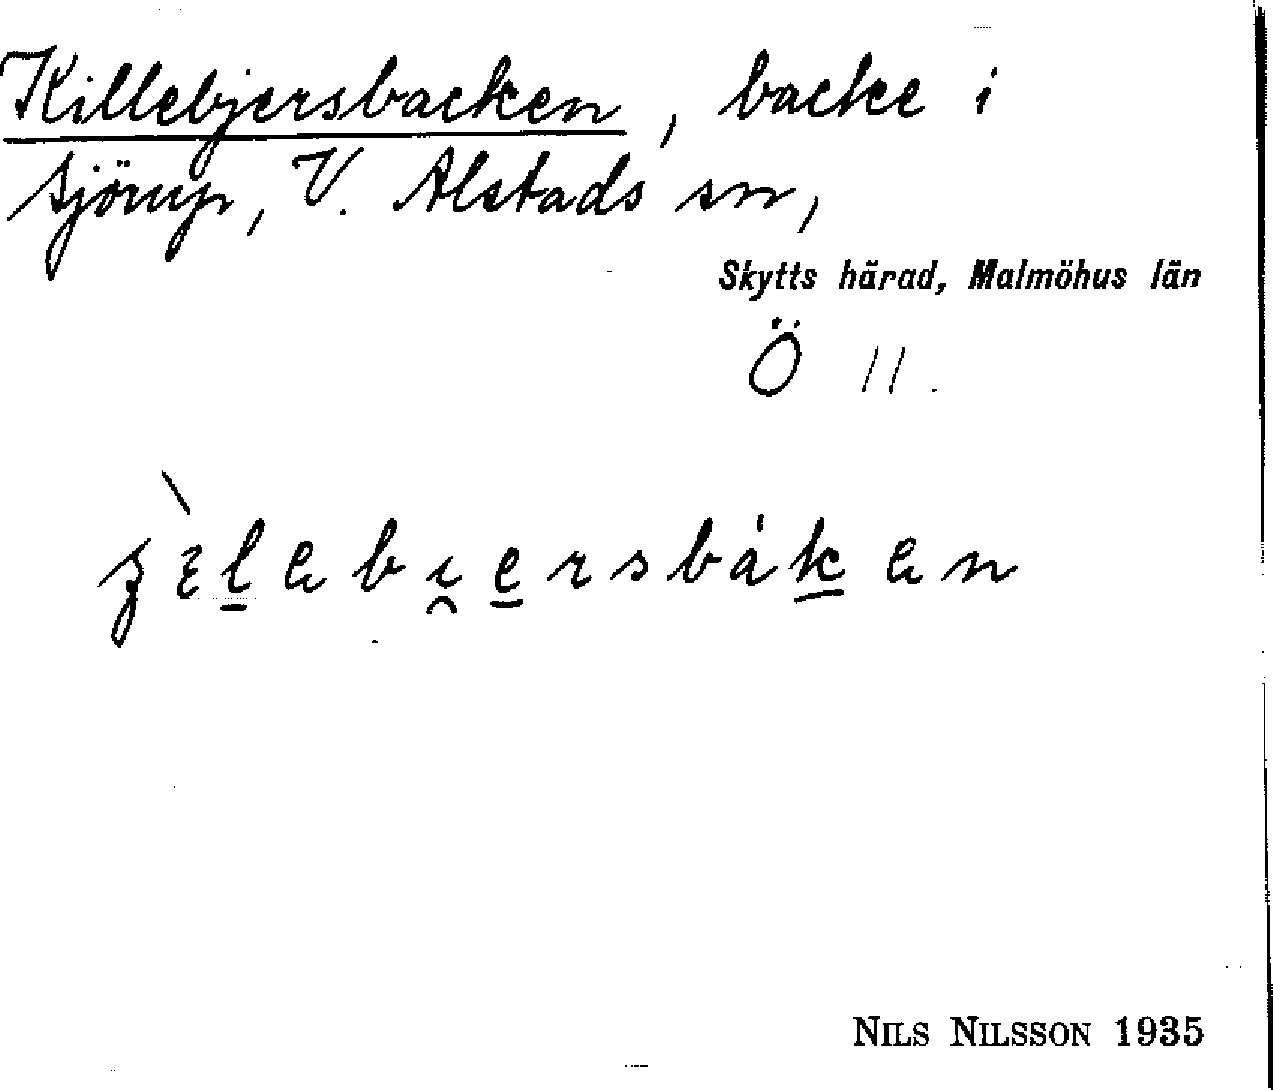 Killebjersbacken, backe i
Sjörup, V. Alstads sn,
Skytts härad, Malmöhus län
Ö 11.
NILS NILSSON 1935